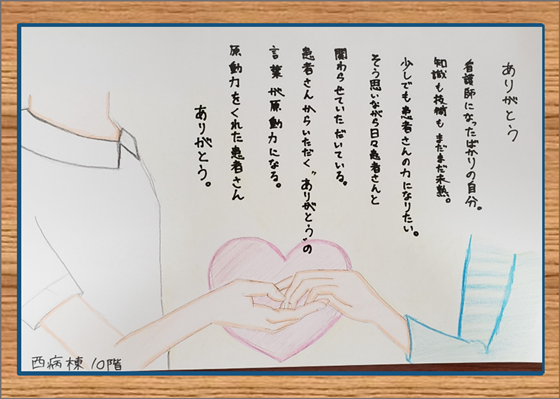 ありがとう
看護師になったばかりの自分。
知識も技術もまだまだ未熟。
少しでも患者さんの力になりたい。
そう思いながら日々患者さんと
関わらせていただいている。
患者さんからいただく“ありがとう”の
言葉が原動力になる。
原動力をくれた患者さん
ありがとう。
西病棟10階